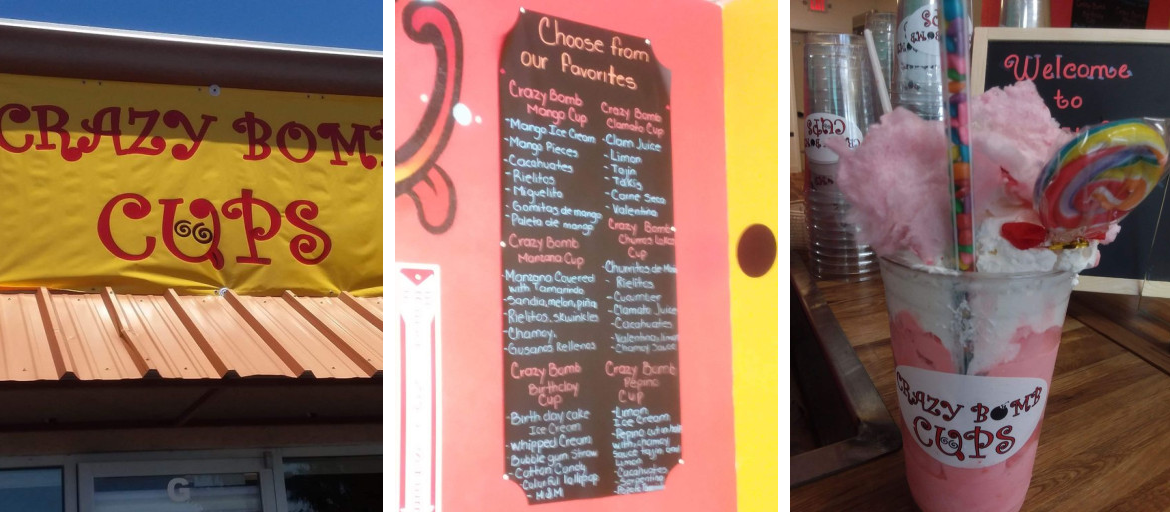 CRAZY BOMB
CUPS
G
Choose from
our Favorites
Crazy Bomb
Mango Cup
-Mango Ice Cream
-Mango Pieces
-Cacahuates
-Rielitos
-Miguelito
-Gomitas de mango
-Paleta de mango
Crazy Bomb
Manzana Cup
-Manzana Covered
with Tamarindo
-Sandia, melon, piña
-Rielitos, skwinkles
-Chamoy,
-Gusanos Rellenos
Crazy Bomb
Birthday
Cup
-Birthday cake
Ice Cream
-Whipped Cream
Bubble gum Straw
-Cotton Candy
-Colorful lollipop
-M&M
Crazy Bomb
Clamato Cup
-Clam Juice
-Limon
-Tajin
-Takis
-Carne Seca
-Valentina
Crazy Bomb
Churros Locos
Cup
-Churritos de
-Rielitos
-Cucumber
-Clamato Juice
-Cacahuates
-Valentina, limon
-Chamoy Sauce
Crazy Bomb
Pepino
Cup
-Limon
Ice Cream
-Pepino cut in half
with chamoy
Sauce tajin and
Limon
-Cacahuates
-Serpentina
Welcome
to
CRAZY BOMB
CUPS